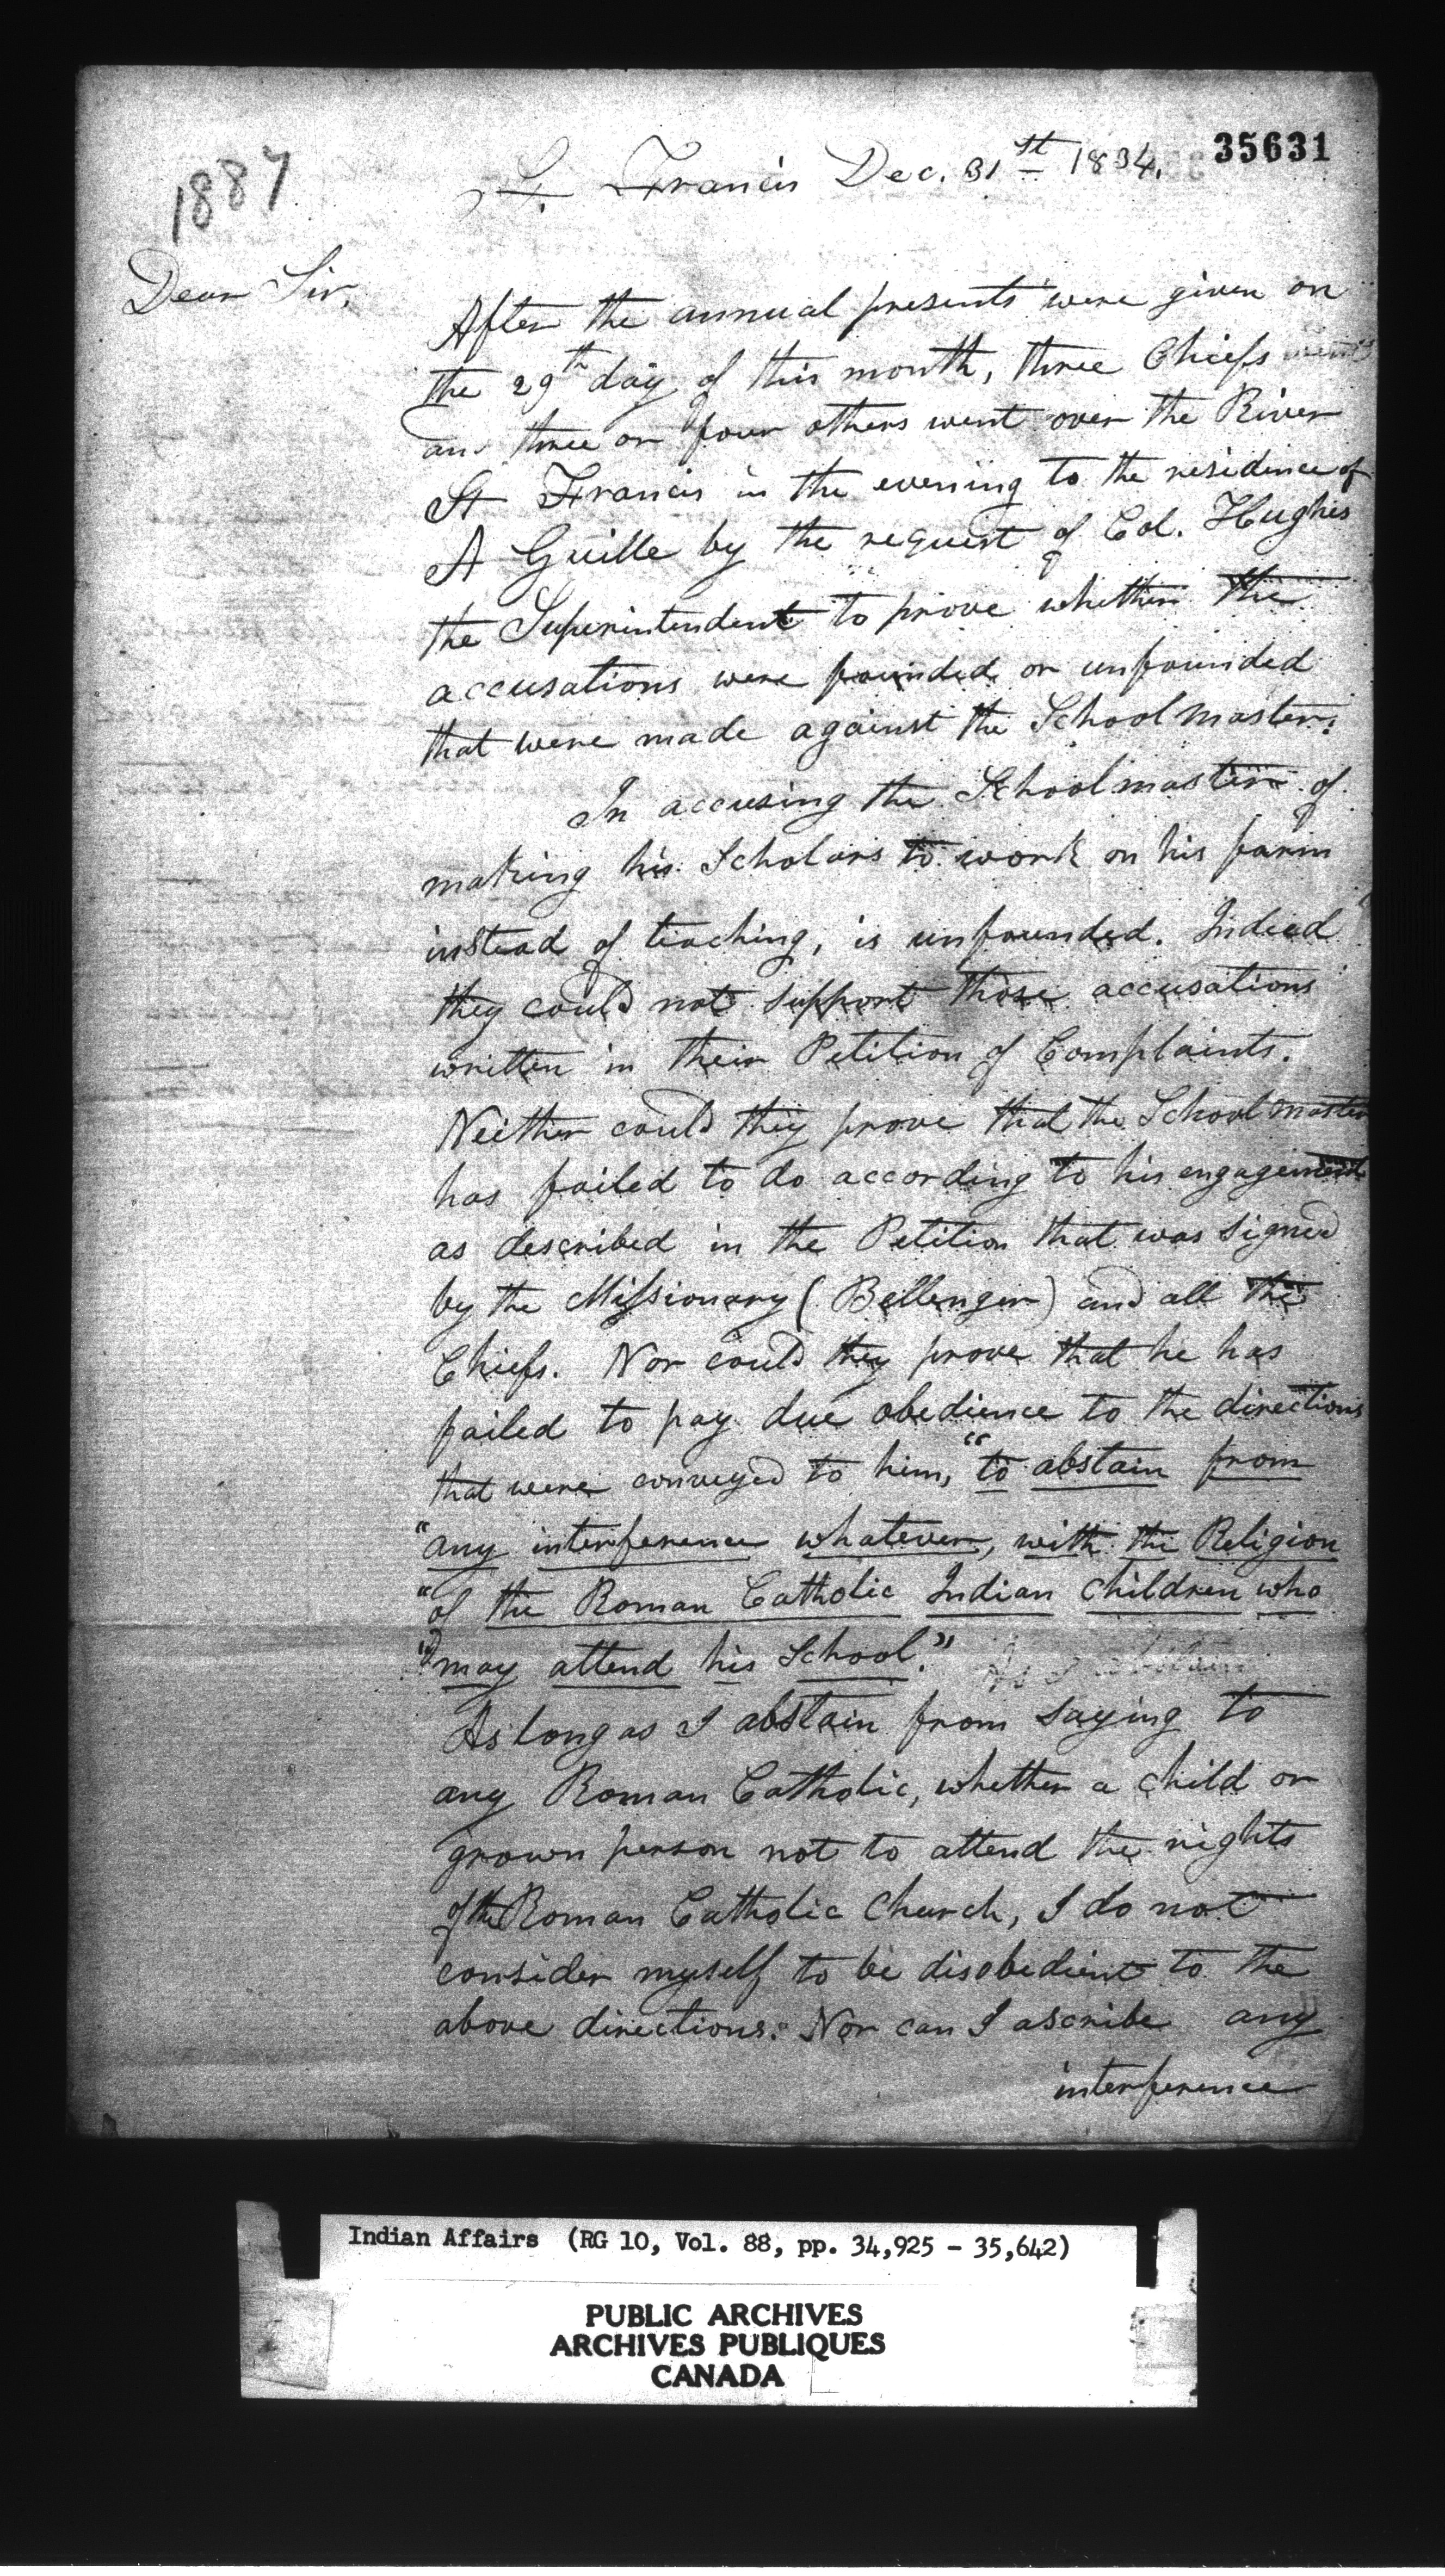 35631
1887
St. Francis Dec. 31st 1834.
Dear Sir,
After the annual presents were given on
the 29th day of this month, three Chiefs
and three or four others went over the River
St Francis in the evening to the residence of
A Guille by the request of Col. Hughes
the Superintendent to prove whether the
accusations were founded or unfounded
that were made against the School master.
In accusing the School master of
making his Scholars to work on his farm
instead of teaching, is unfounded. Indeed
they could not support those accusations
written in their Petition of Complaints.
Neither could they prove that the School master
has failed to do according to his engagement
as described in the Petition that was signed
by the Missionary (Bellenger) and all the
Chiefs. Nor could they prove that he has
failed to pay due obedience to the directions
that were conveyed to him, "to abstain from
"any interference whatever, with the Religion
"of the Roman Catholic Indian children who
"may attend his School."
As long as I abstain from saying to
any Roman Catholic, whether a child or
grown person not to attend the rights
of the Roman Catholic Church, I do not
consider myself to be disobedient to the
above directions. Nor can I ascribe any
interference
Indian Affairs (RG 10, Vol. 88, pp. 34,925 - 35,642)
PUBLIC ARCHIVES
ARCHIVES PUBLIQUES
CANADA